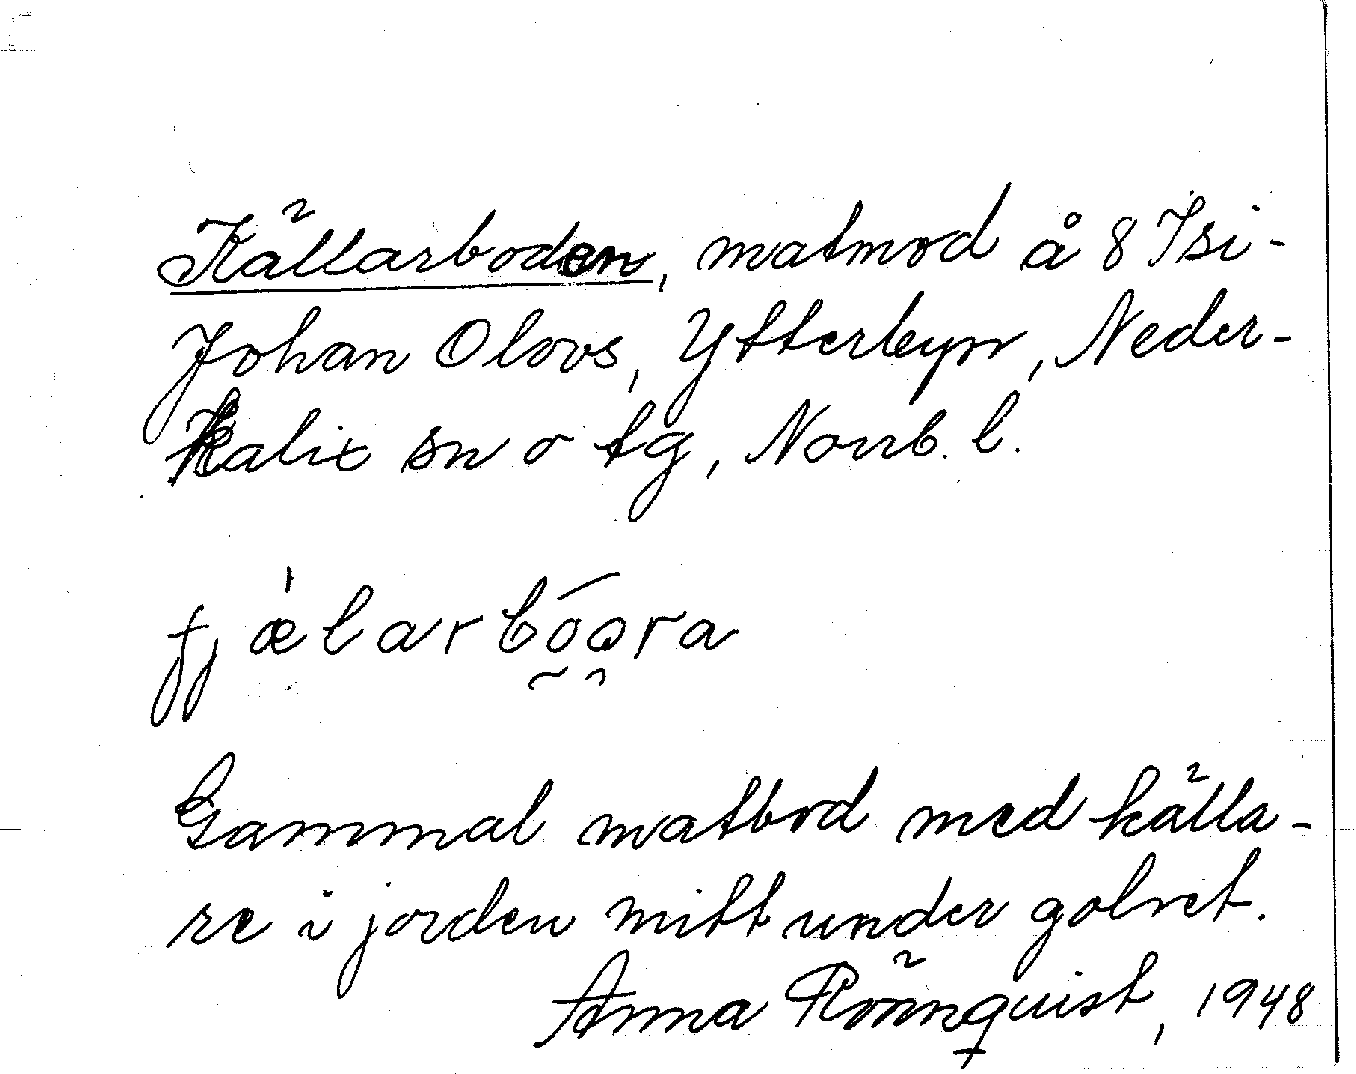 Källarboden, matmod å 8 Isi-
Johan Olovs, Ytterbyn, Neder-
Kalix sn o tg, Norrb. l.
fjælarbóọra
Gammal matbod med källa-
re i jorden mitt under golvet.
Anna Rönnquist, 1948